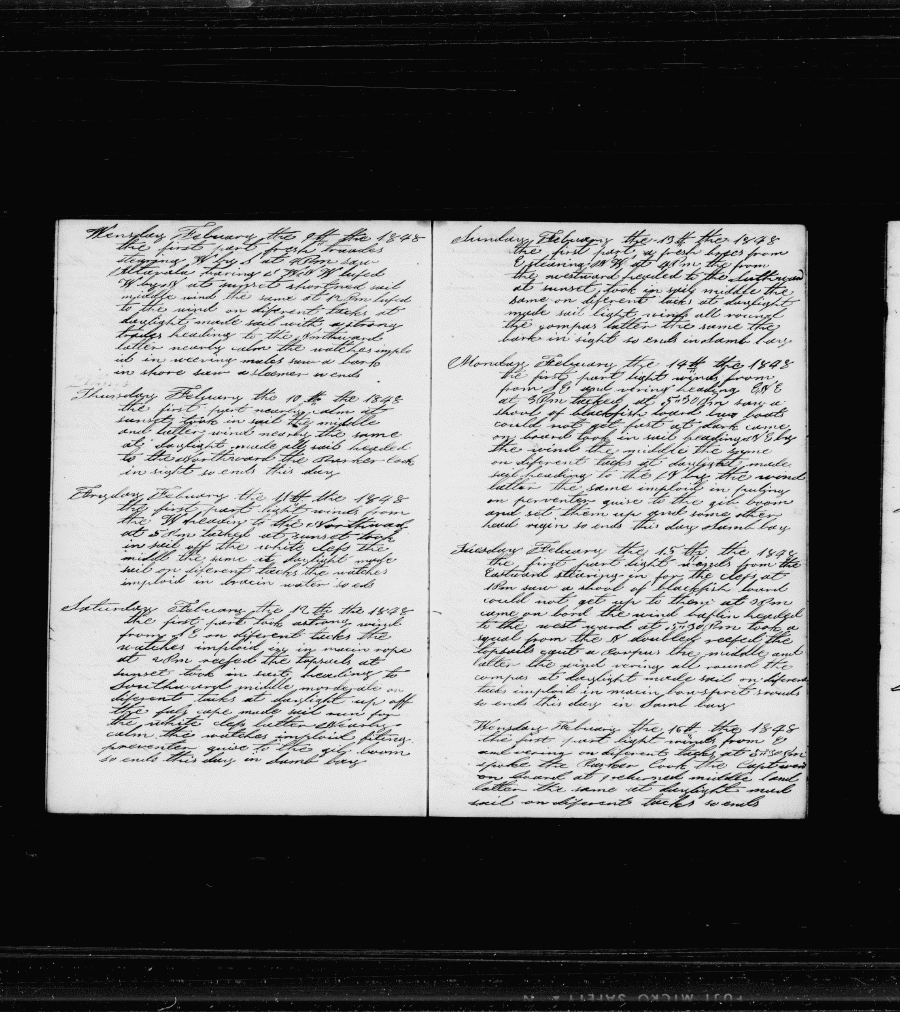 Wensday Febuary the 9th the 1848
the first part fresh traides
stearing W by S at 4 Pm saw
Altavala haveing W N W lufed
W by N at sunset shortned sail
middle wind the same at 12 Pm lufed
to the wind on diferent tacks at
daylight made sail with a strong
traides heading to the Northward
latter nearly calm the watches implo
id in weeving mates saw a bark
in shore saw a sleemer so ends
Thursday Febuary the 10th the 1848
the first part nearly calm at
sunset took in sail the middle
and latter wind nearby the same
at daylight made all sail headed
to the Northward the Parker Cook
in sight so ends this day
Fryday Febuary the 11th the 1848
the first part light winds from
the W heading to the Northward
at 5 Pm tacked at sunset took
in sail off the white clefs the
middle the same at daylight made
sail on diferent tacks the watches
imploid in bracin water so eds
Saturday Febuary the 12th the 1848
the first part took a strong wind
from N E on diferent tacks the
watches imploid in macin rope
at 2 Pm reefed the topsails at
sunset took in sail heading to
Southward middle morderate on
diferent tacks at daylight up off
the fals cape made sail run for
the white clefs latter nearly
calm the watches imploid fiting
preventer guise to the gib boom
so ends this day in Samb bay
Sunday Febuary the 13th the 1848
the first part a fresh brees from
E stearing N W at 4 Pm the from
the westward headed to the Southward
at sunset took in sail middle the
same on diferent tacks at daylight
made sail light winds all round
the compas latter the same the
bark in sight so ends in Samb bay
Monday Febuary the 14th the 1848
the first part light winds from
from S E and vering heading E N E
at 3 Pm tacked at 5"30 Pm saw a
shool of blackfish loard two boats
could not get fast at dark came
on board took in sail heading N E by
the wind the middle the same
on diferent tacks at daylight made
sail heading to the N by the wind
latter the same imploid in puting
on perventer guise to the gib boom
and set them up and some other
head rigin so ends this day Samb bay
Tuesday Febuary the 15th the 1848
the first part light winds from the
Eastward stearing in for the clefs at
1 Pm saw a shool of blackfish loard
could not get up to them at 2 Pm
came on bord the wind baflin headed
to the west ward at 5"30 Pm took a
squal from the N doubled reefed the
topsails quit a rompus the middle and
latter the wind vering all round the
compas at daylight made sail on diferent
tacks imploid in macin bowspret srouds
so ends this day in Samb bay
Wensday Febuary the 16th the 1848
the first part light winds from E
and vering on diferent tacks at 5"30 Pm
spoke the Parker Cook the Capt went
on board at returned middle land
latter the same at daylight made
sail on diferent tacks so ends
FUJI MICRO SAFETY